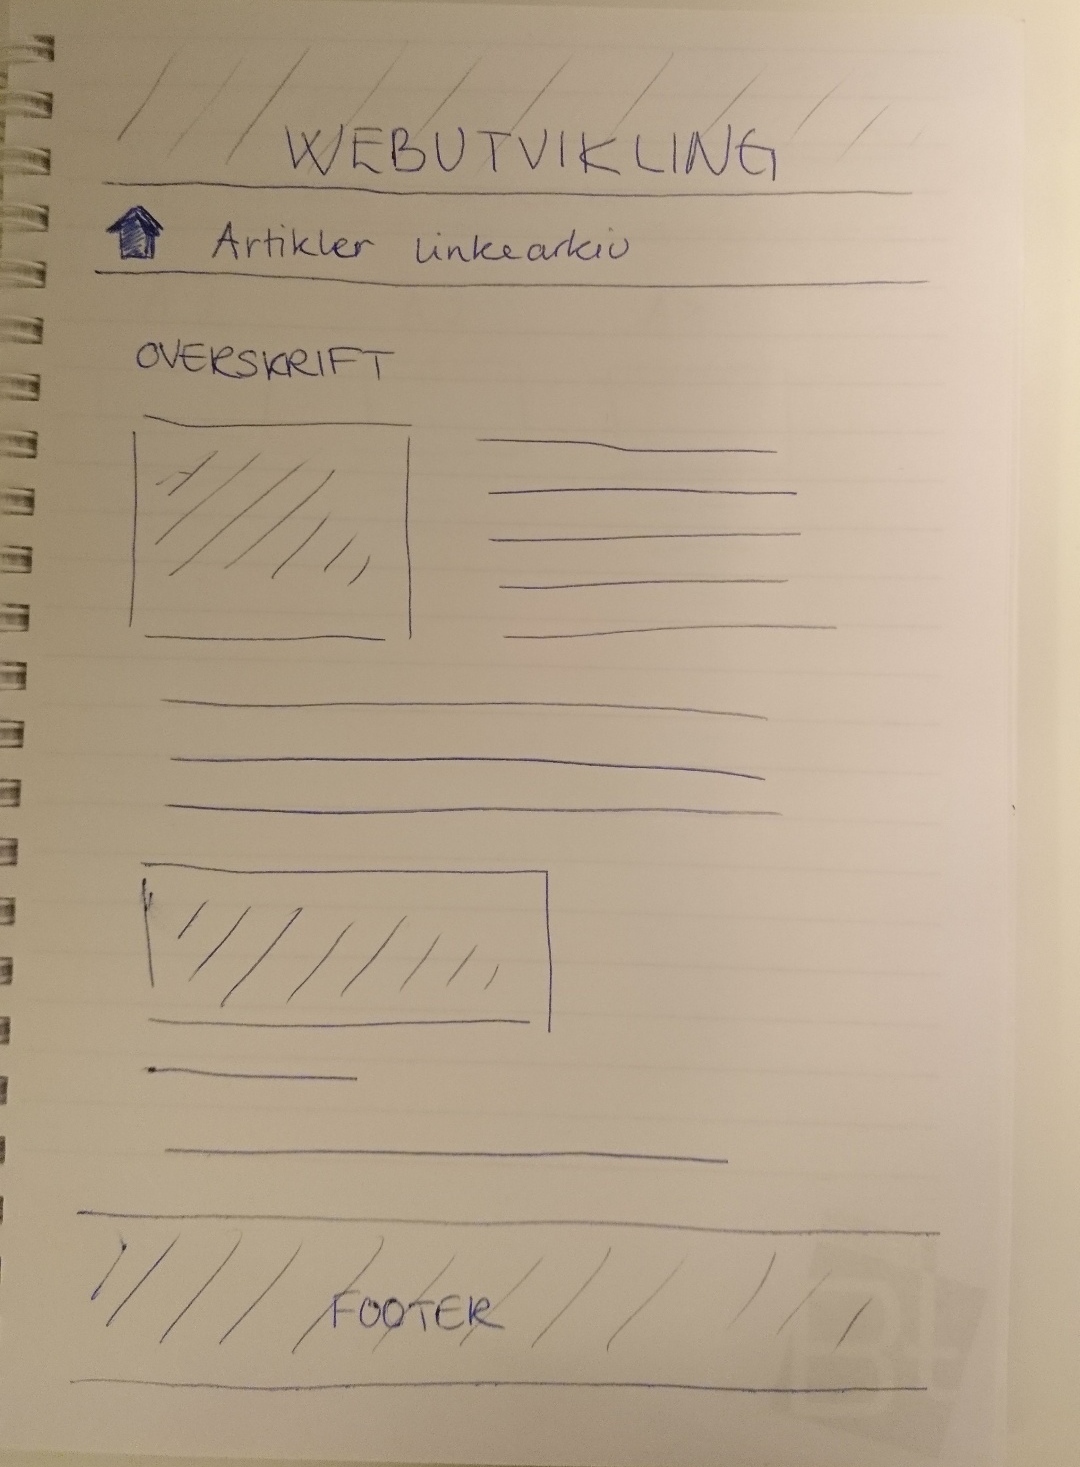 WEBUTVIKLING
Artikler linkearkiv
OVERSKRIFT
FOOTER